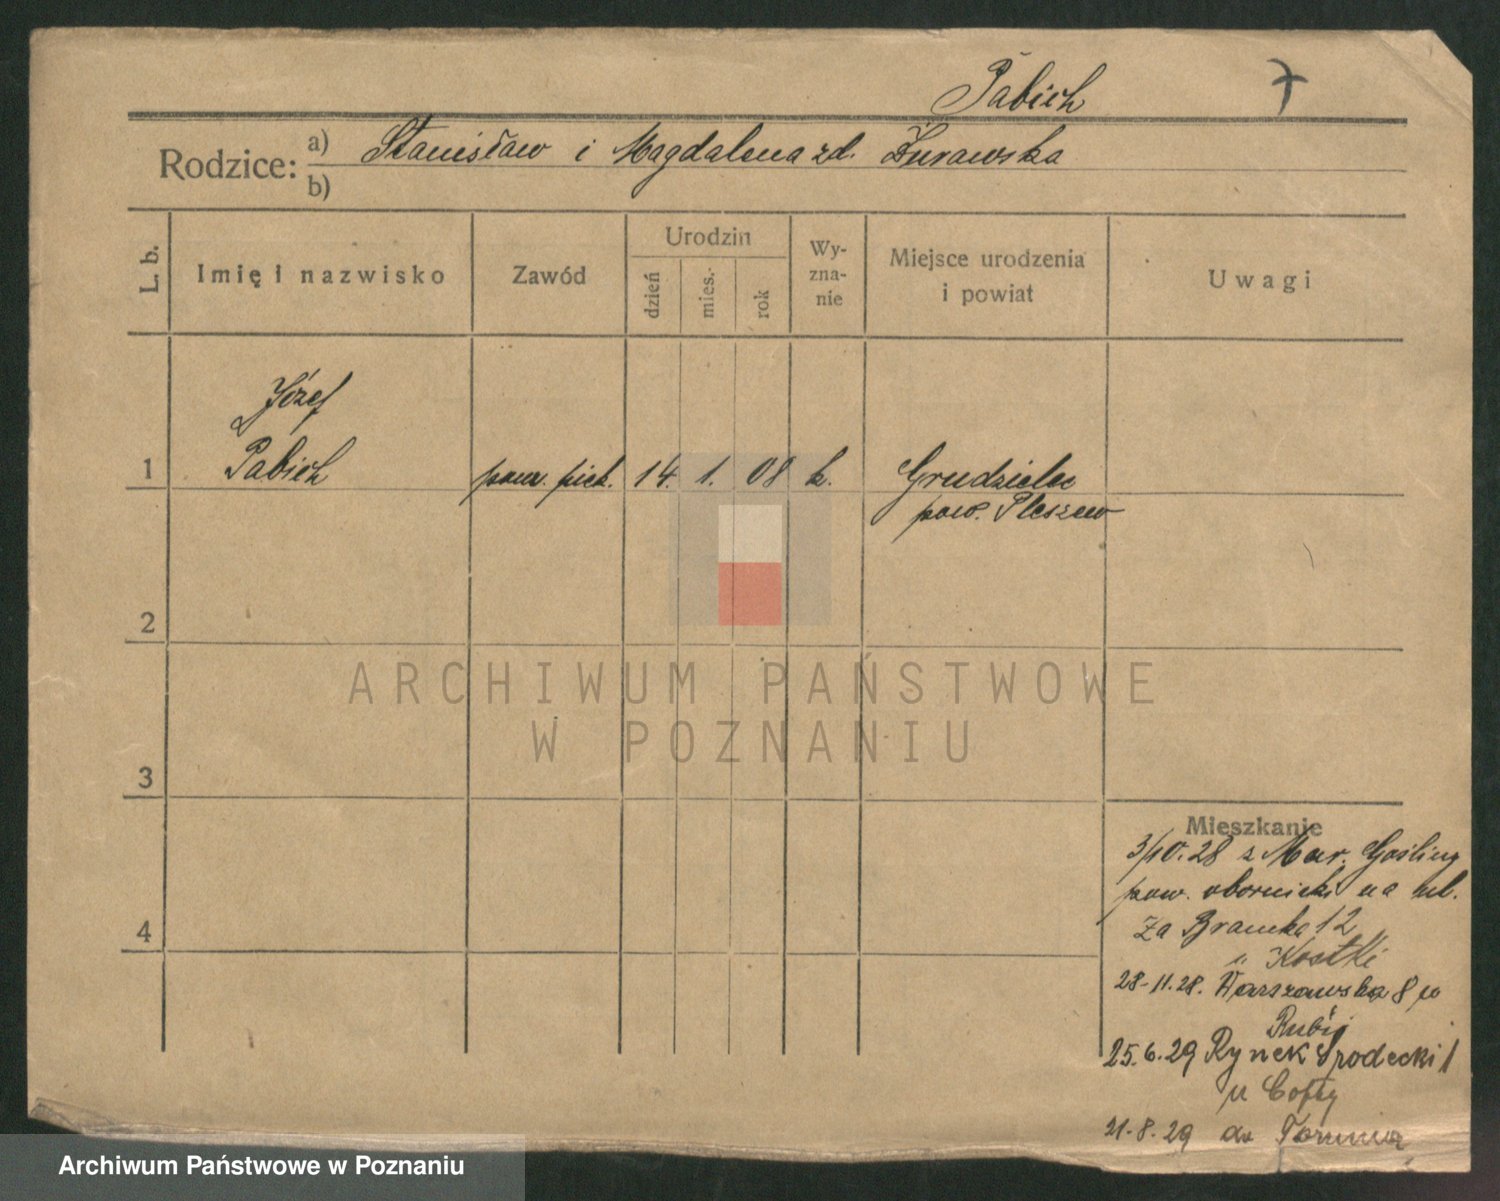 Pabich 7
Rodzice: a) Stanisław i Magdalena zd. Żurawska
b)
L. b. Imię i nazwisko Zawód Urodzin dzień mies. rok Wy-zna-nie Miejsce urodzenia i powiat Uwagi
Józef
1 Pabich pom. piek. 14. 1. 08 k. Grudzielec
pow. Pleszew
2
ARCHIWUM PAŃSTWOWE
W POZNANIU
3
Mieszkanie
3/10.28 z Mur. Gośliny
pow. obornicki na ul.
4 Za Bramką 12
u Kostki
28-11.28. Warszawska 8 u
25.6.29 Rynek Środecki 1
u
21-8.29 do Torunia
Archiwum Państwowe w Poznaniu